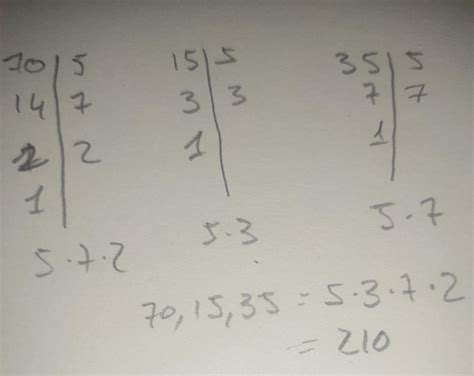 70|5
14|7
2|2
1|
5·7·2
15|5
3|3
1|
5·3
35|5
7|7
1|
5·7
70,15,35 = 5·3·7·2
= 210